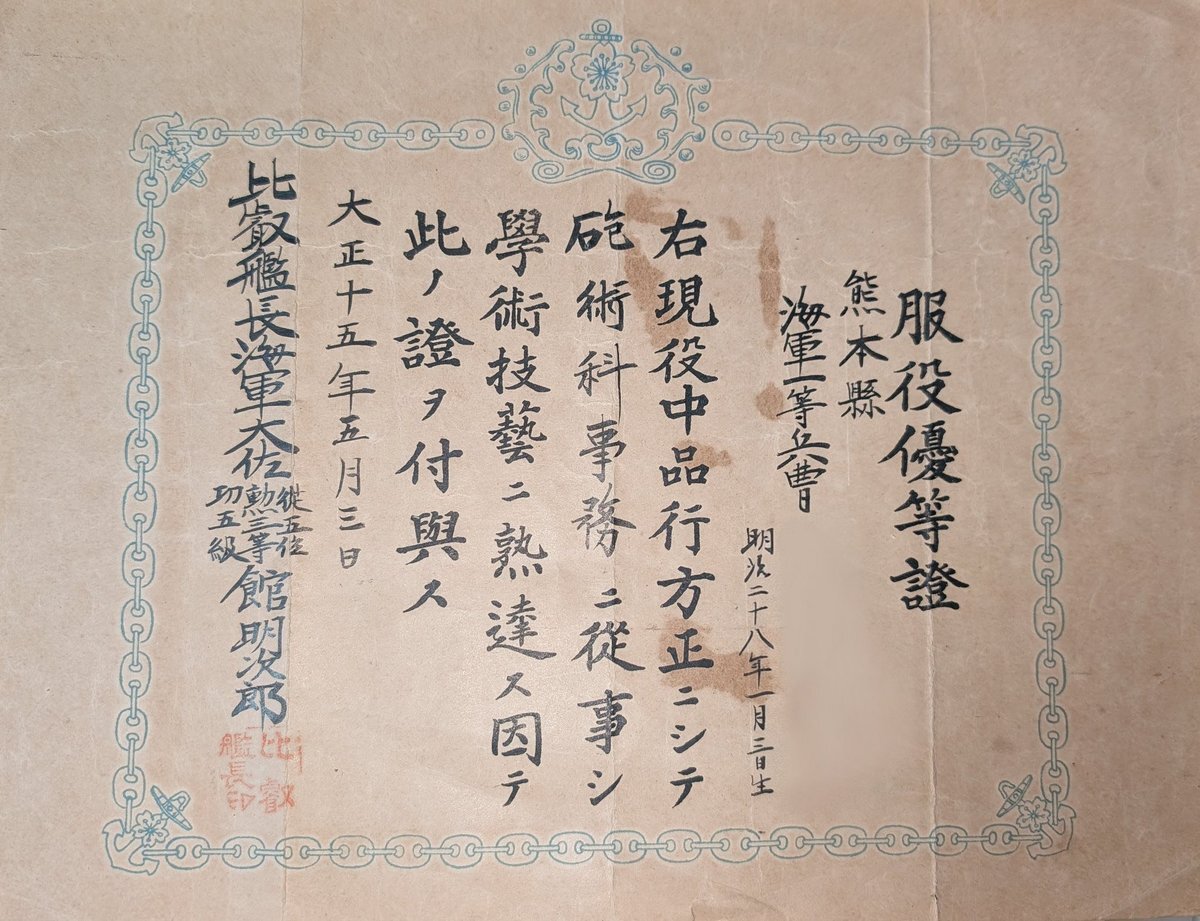 服役優等證
熊本縣
海軍一等兵曹
明治二十八年一月三日生
右現役中品行方正ニシテ
砲術科事務ニ從事シ
學術技藝ニ熟達ス因テ
此ノ證ヲ付與ス
大正十五年五月三日
比叡艦長海軍大佐從五位勲三等功五級館明次郎
比叡
艦長印